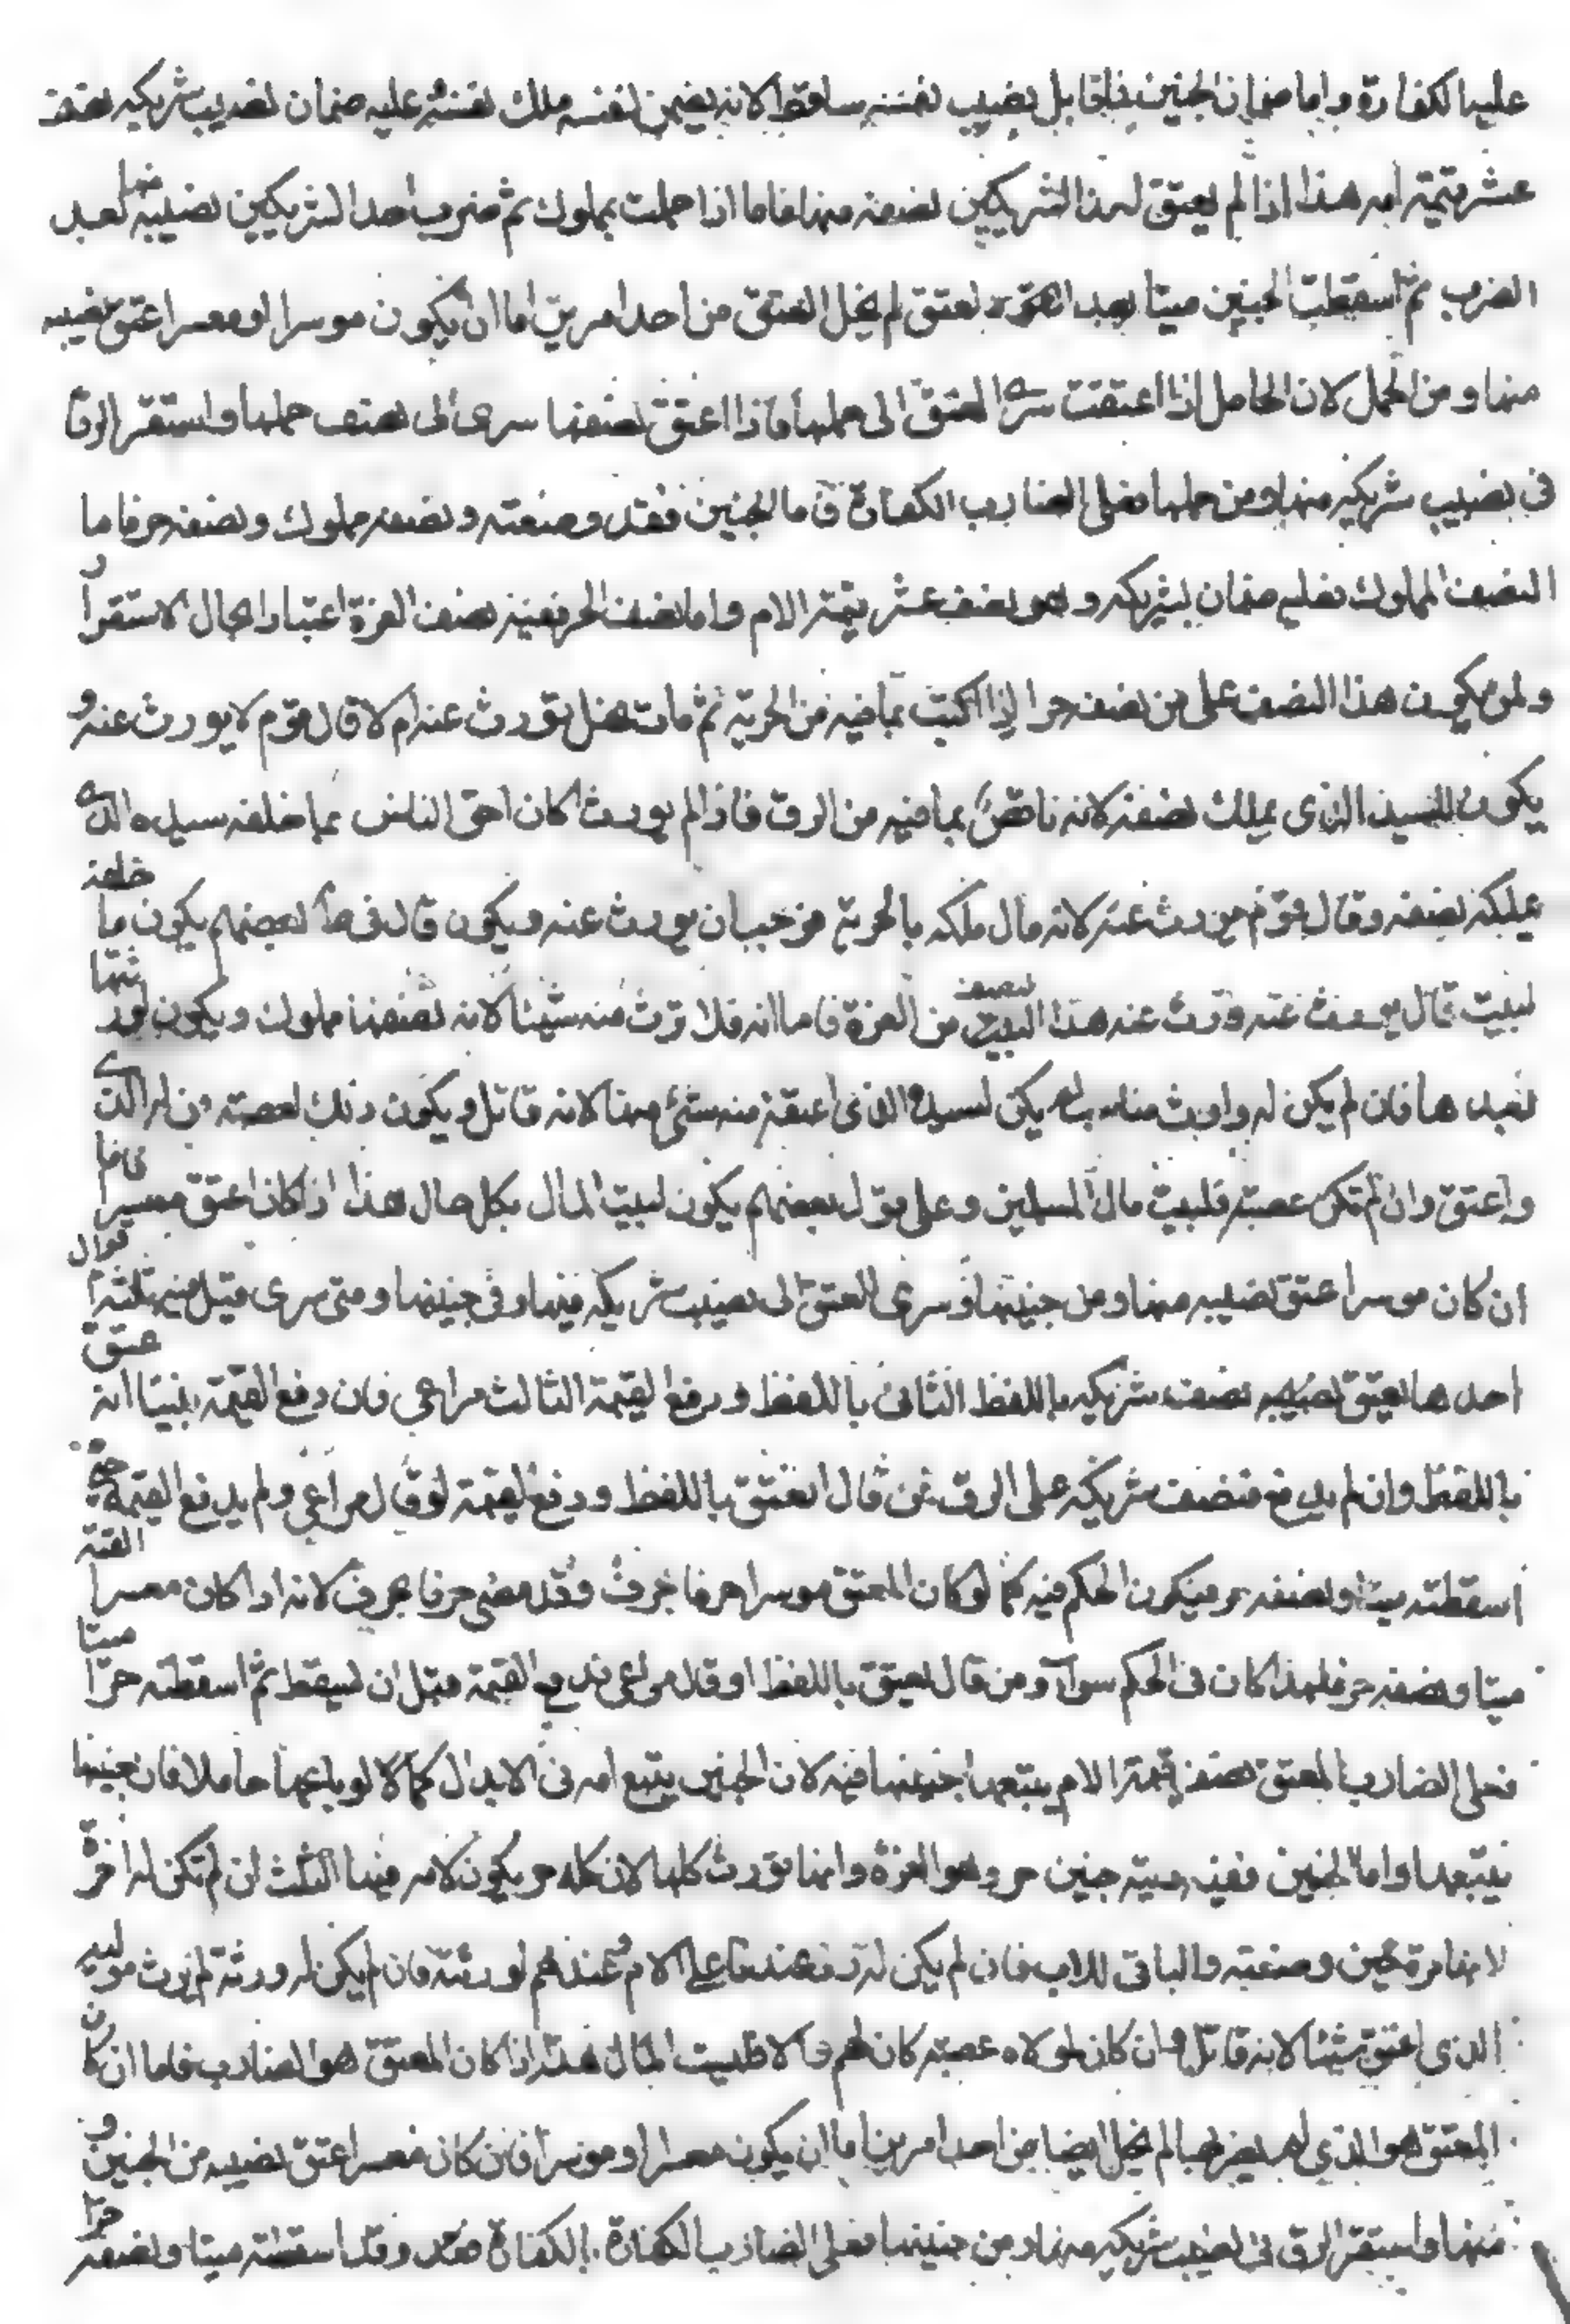 عليه الكفارة واما ضمان الجنين فلقابل نصيب نفسه ساقط لانه يضمن لنفسه ملك نفسه عليه ضمان نصيب شريكه نصف
عشر قيمة امه هذا اذا لم يعتق هذا الشريكين نصفه منها فاما اذا حملت بمملوك ثم ضرب احد الشريكين نصيبه منها لعبد
الضرب ثم اسقطت الجنين ميتا بعد العتق لم يخل المعتق من احد امرين اما ان يكون موسرا او معسرا عتق نصيبه
منها ومن الحمل لان الحامل اذا اعتقت سرى العتق الى حملها فاذا اعتق نصفها سرى الى نصف حملها واستقر الرق
فى نصيب شريكه منها ومن حملها فعلى الضارب الكفارة فاما الجنين فقد وضعته ونصفه مملوك ونصفه حر فاما
النصف المملوك فعليه ضمان لشريكه وهو نصف عشر قيمة الام واما نصف الحر ففيه نصف الغرة اعتبارا بحال الاستقرار
ولمن يكون هذا النصف على من نصفه حر اذا اكتسب بما فيه من الحرية ثم مات هل يورث عنه ام لا قال قوم لا يورث عنه و
يكون للسيد الذى يملك نصفه لانه ناقص بما فيه من الرق فاذا لم يورث كان احق الناس بما خلفه سيده الذى
يملكه نصفه وقال قوم يورث عنه لانه مال ملكه بالحرية فوجب ان يورث عنه ويكون قال بعضهم يكون ما خلفه
لبيت قال يورث عنه ورث عنه هذا النصف من الغرة فاما امه فلا ترث منه شيئا لانه نصفها مملوك ويكون لورثتها
بعدها فان لم يكن له وارث مناسب لم يكن لسيده الذى اعتقه منه شئ ههنا لانه قاتل ويكون ذلك لعصبته الذى
واعتق وان لم تكن عصبة فلبيت مال المسلمين وعلى قول بعضهم يكون لبيت المال بكل حال هذا اذا كان اعتق معسرا فاما
ان كان موسرا عتق نصيبه منها ومن جنينها وسرى العتق الى نصيب شريكه فيها وفى جنينها ومتى سرى قيل فيه ثلثة اقوال
احدها يعتق نصيبه نصف شريكه باللفظ الثانى باللفظ ودفع القيمة الثالث مراعى فان دفع القيمة بنينا انه عتق
باللفظ وان لم يدفع فنصف شريكه على الرق فمن قال العتق باللفظ ودفع القيمة او قال مراعى ولم يدفع القيمة حتى
اسقطته ميتا ونصفه حر فيكون الحكم فيه كما لو كان المعتق موسرا حرفا بحرف وقد مضى حرفا بحرف لانه اذا كان معسرا القته
ميتا ونصفه حر فلهذا كان فى الحكم سواء ومن قال يعتق باللفظ او قال مراعى فدفع القيمة قبل ان يسقط ثم اسقطته حرا ميتا
فعلى الضارب المعتق نصف قيمة الام يتبعها جنينها فيه لان الجنين يتبع امه فى الابدال كما لا لو باعها حاملا فان جنينها
يتبعها واما الجنين ففيه دية جنين حر وهو الغرة وانها تورث كلها لان كله حر يكون لامه فيها الثلث ان لم تكن له اخوة
لانها حرة حين وضعته والباقى للاب فان لم يكن له رد عندنا على الام وعندهم لورثته فان لم يكن له ورثة لم يرث موليه
الذى اعتق شيئا لانه قاتل وان كان لمولاه عصبة كان لهم والا فلبيت المال هذا اذا كان المعتق هو الضارب فاما ان كان
المعتق هو الذى لم يضربها لم يخل ايضا من احد امرين اما ان يكون معسرا او موسرا فان كان معسرا عتق نصيبه من الجنين و
منها واستقر الرق فى نصيب شريكه منها ومن جنينها فعلى الضارب الكفارة بالكفارة وقد اسقطته ميتا ونصفه حرا